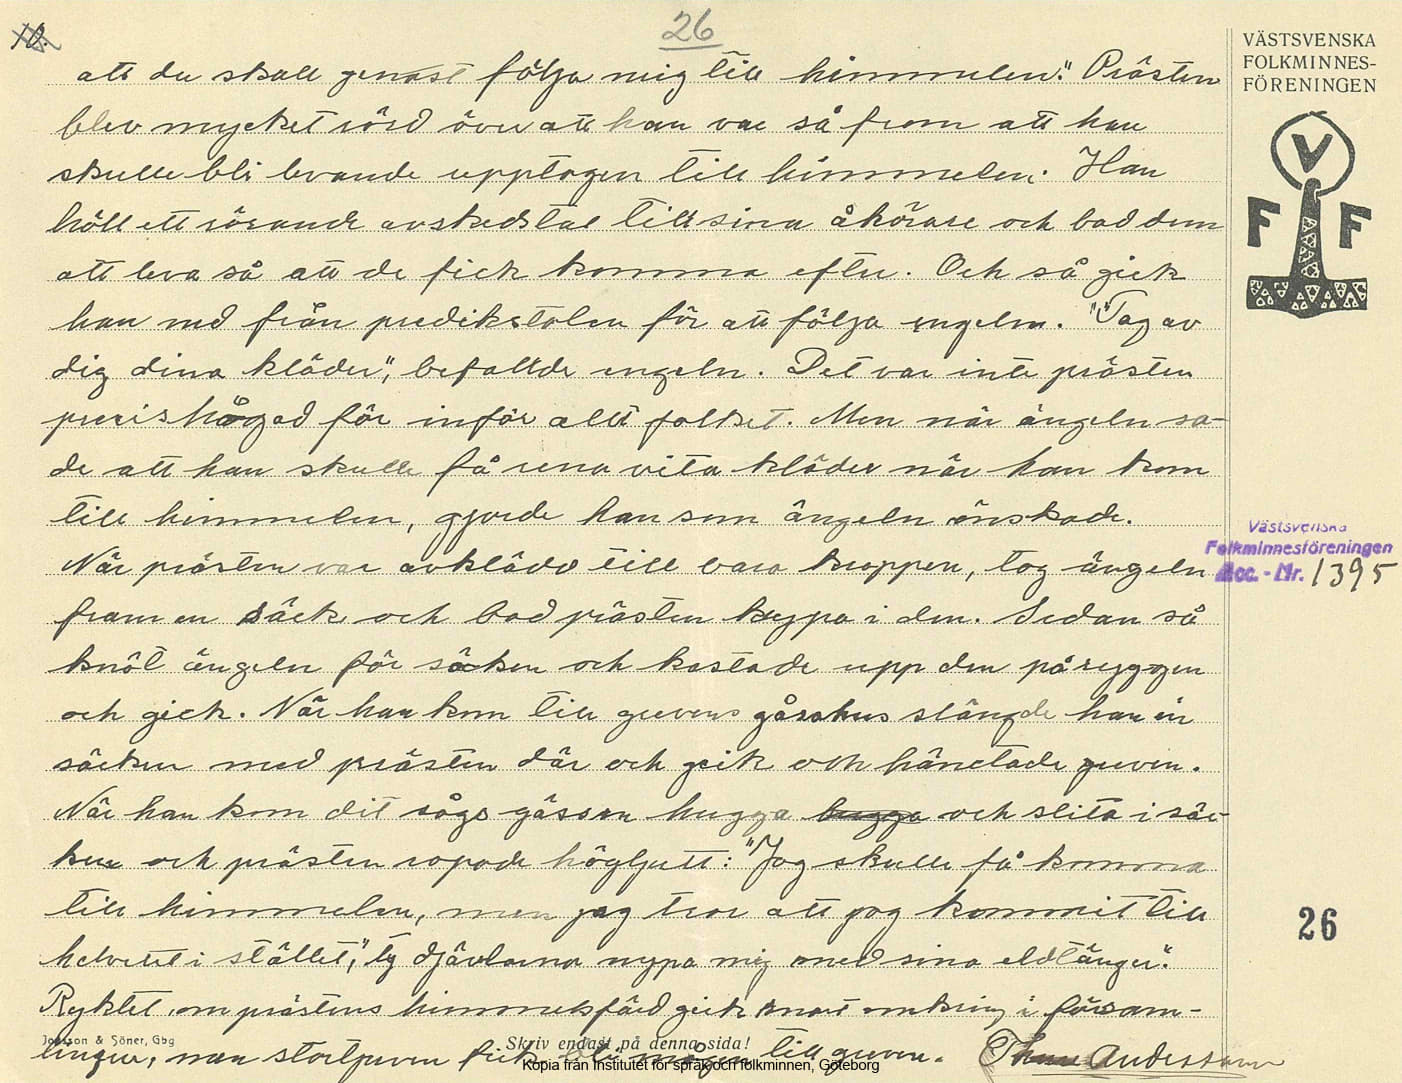 10.
26
att du skall genast följa mig till himmelen." Prästen
blev mycket rörd över att han var så from att han
skulle bli levande upptagen till himmelen. Han
höll ett rörande avskedstal till sina åhörare och bad dem
att leva så att de fick komma efter. Och så gick
han ned från predikstolen för att följa engeln. "Tag av
dig dina kläder", befallde engeln. Det var inte prästen
precis hågad för inför allt folket. Men när ängeln sa-
de att han skulle få rena vita kläder när han kom
till himmelen, gjorde han som ängeln önskade.
När prästen var avklädd till bara kroppen, tog ängeln
fram en säck och bad prästen krypa i den. Sedan så
knöt ängeln för säcken och kastade upp den på ryggen
och gick. När han kom till grevens gåsahus slängde han in
säcken med prästen där och gick och hämtade greven.
När han kom dit sågs gässen hugga hugga och slita i säc-
ken och prästen ropade högljutt: "Jag skulle få komma
till himmelen, men jag tror att jag kommit till
helvetet i stället," ty djävlarna nypa mig med sina eldtänger".
Ryktet om prästens himmelsfärd gick snart omkring i försam-
lingen, men stortjuven fick bli mågen till greven. Thure Andersson
Jonsson & Söner, Gbg
Skriv endast på denna sida!
Kopia från Institutet för språk och folkminnen, Göteborg
VÄSTSVENSKA
FOLKMINNES-
FÖRENINGEN
V
F F
Västsvenska
Folkminnesföreningen
Acc. - Nr. 1395
26